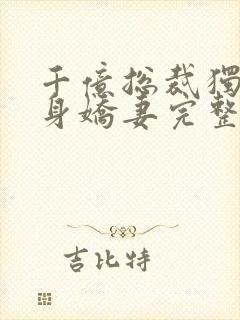 千億總裁獨
身嬌妻完整
吉比特